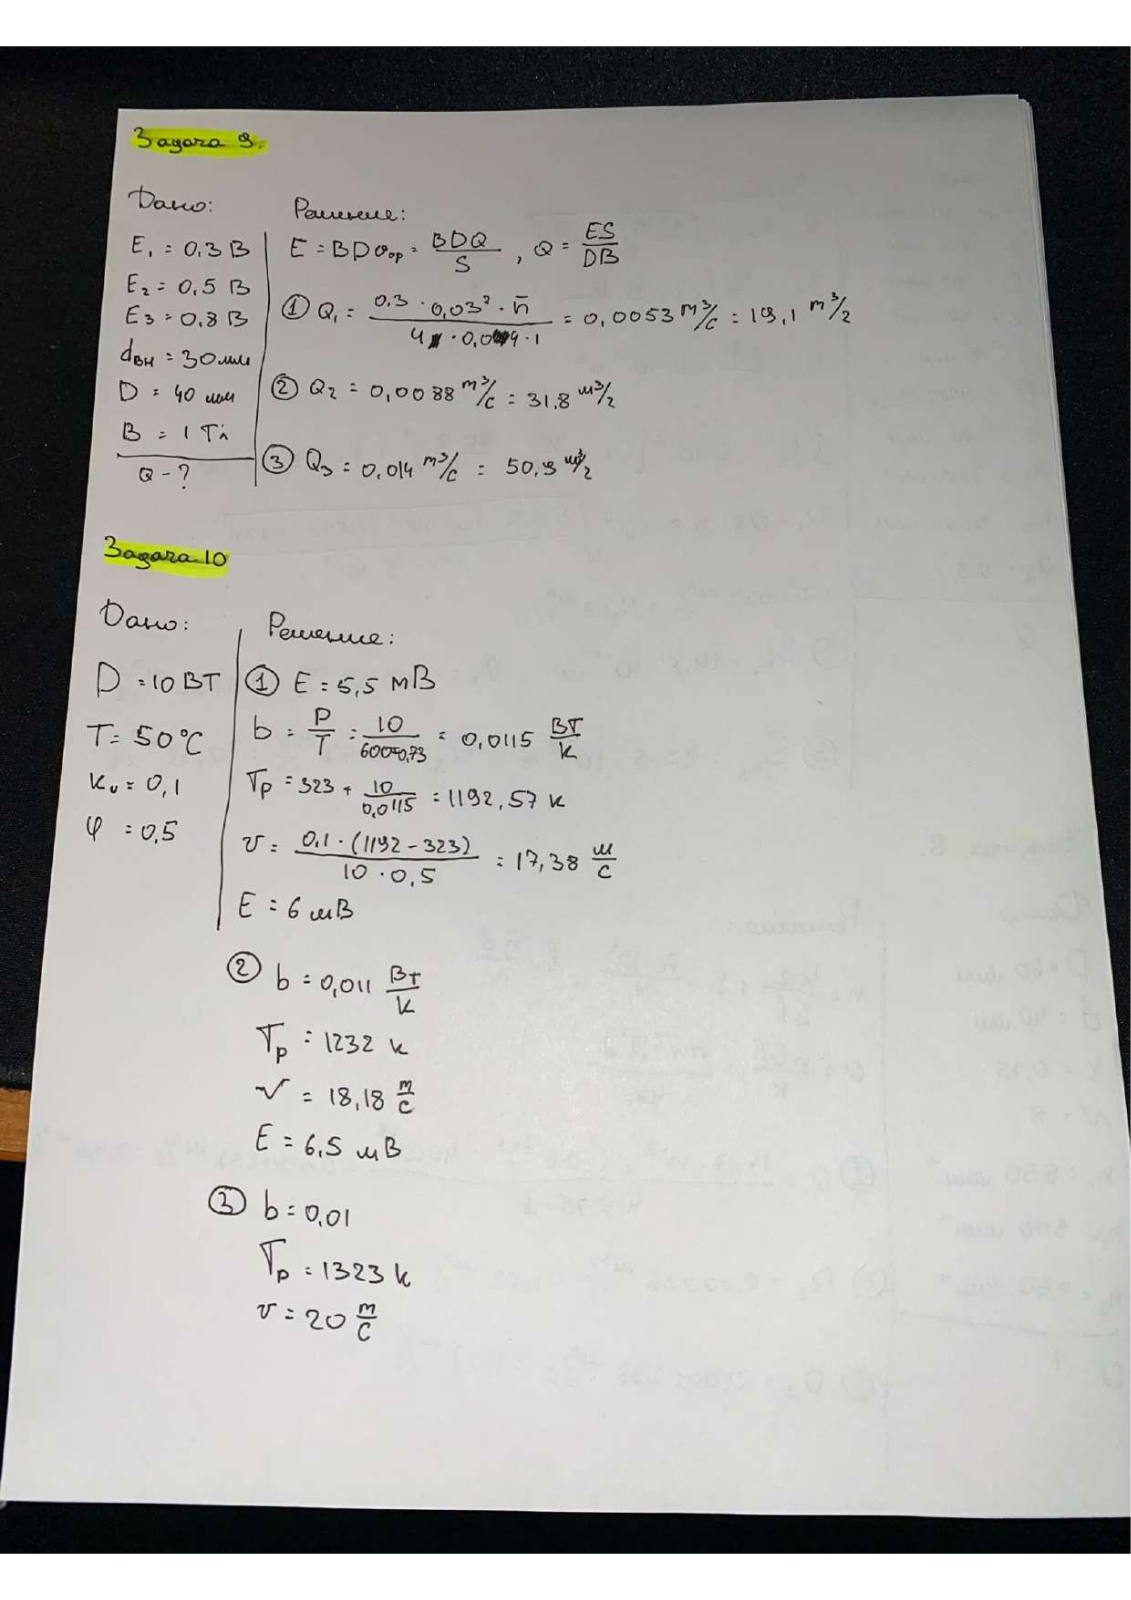 Задача 9.
Дано:
E₁ = 0,3 В
E₂ = 0,5 В
E₃ = 0,8 В
dвн = 30мм
D = 40 мм
B = 1 Тл
Q - ?
Решение:
E = BDυср = BDQ/S , Q = ES/DB
① Q₁ = 0,3 · 0,03² · π / 4 · 0,04 · 1 = 0,0053 м³/с = 19,1 м³/г
② Q₂ = 0,0088 м³/с = 31,8 м³/г
③ Q₃ = 0,014 м³/с = 50,9 м³/г
Задача 10
Дано:
D = 10 ВТ
T = 50°C
Kυ = 0,1
φ = 0,5
Решение:
① E = 5,5 мВ
b = P/T = 10/ = 0,0115 ВТ/К
Tр = 323 + 10/0,0115 = 1192,57 К
υ = 0,1 · (1192 - 323) / 10 · 0,5 = 17,38 м/с
E = 6 мВ
② b = 0,011 Вт/К
Tр = 1232 К
υ = 18,18 м/с
E = 6,5 мВ
③ b = 0,01
Tр = 1323 К
υ = 20 м/с